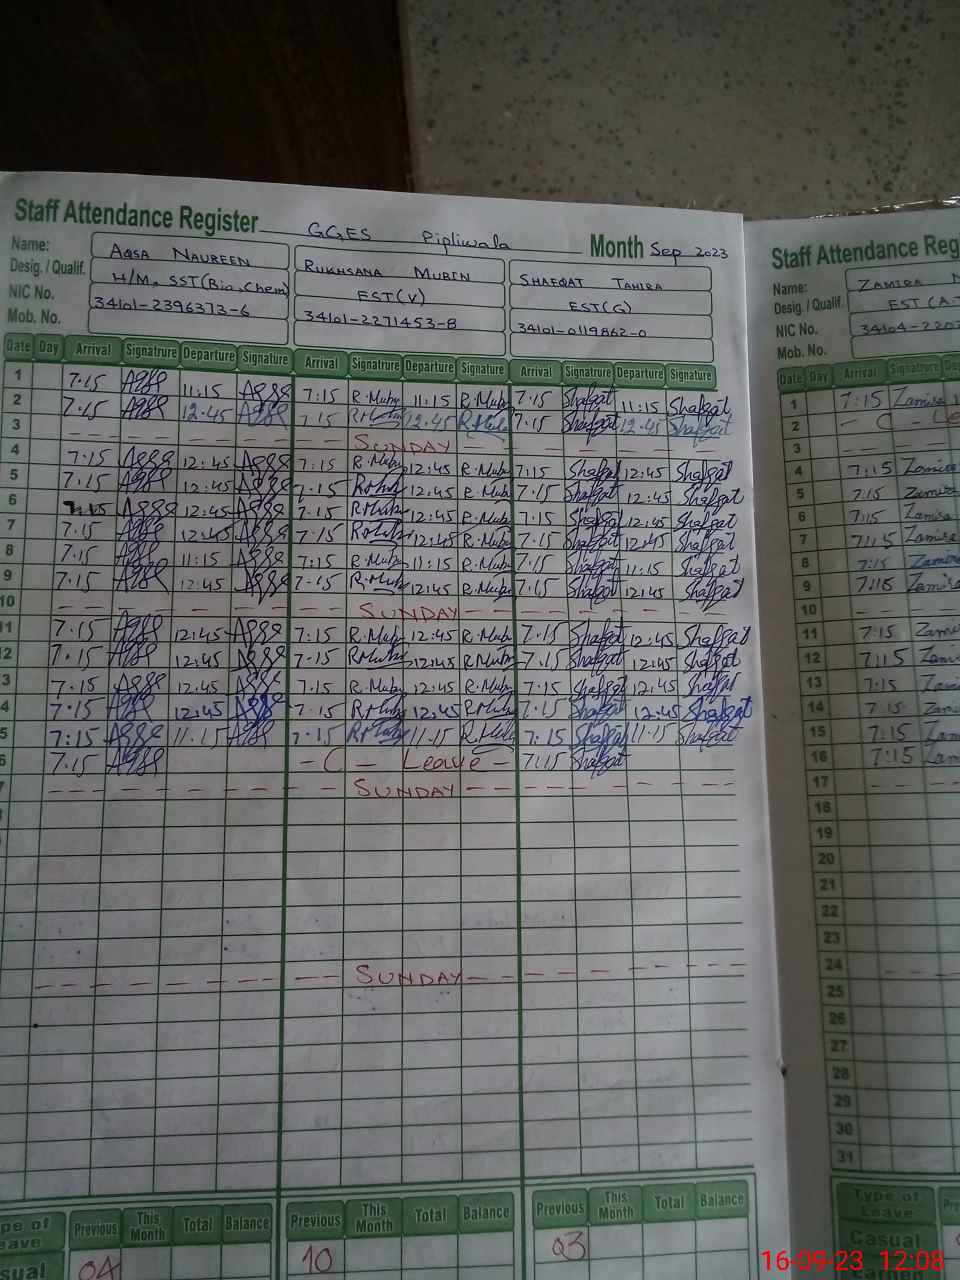 Staff Attendance Register GGES Pipliwala Month Sep 2023
Name: AQSA NAUREEN RUKHSANA MUBIN SHAFQAT TAHIRA
Desig. / Qualif. H/M, SST(Bio, Chem) EST(V) EST(G)
NIC No. 34101-2396373-6 34101-2271453-8 34101-0119862-0
Mob. No.
Date Day Arrival Signatrure Departure Signature Arrival Signatrure Departure Signature Arrival Signatrure Departure Signature
1 7.15 11:15 7:15 R.Muby 11:15 R.Muby 7.15 Shafqat 11:15 Shafqat
2 7.15 12.45 7:15 12.45 7.15 Shafqat 12.45 Shafqat
3 SUNDAY
4 7:15 12:45 7:15 R.Muby 12:45 R.Muby 7:15 Shafqat 12:45 Shafqat
5 7.15 12:45 7.15 12:45 R.Muby 7.15 Shafqat 12:45 Shafqat
6 7:15 12:45 7.15 12:45 R.Muby 7.15 Shafqat 12:45 Shafqat
7 7.15 12:45 7.15 12:45 R.Muby 7.15 Shafqat 12:45 Shafqat
8 7.15 11:15 7:15 R.Muby 11:15 R.Muby 7.15 Shafqat 11:15 Shafqat
9 7.15 12:45 7.15 R.Muby 12:45 R.Muby 7.15 Shafqat 12:45 Shafqat
10 SUNDAY
11 7.15 12:45 7:15 R.Muby 12:45 R.Muby 7.15 Shafqat 12:45 Shafqat
12 7.15 12:45 7.15 12:45 R.Muby 7.15 Shafqat 12:45 Shafqat
3 7.15 12:45 7.15 R.Muby 12:45 R.Muby 7.15 Shafqat 12:45 Shafqat
4 7.15 12:45 7.15 12:45 7.15 Shafqat 12:45 Shafqat
5 7:15 11:15 7.15 11:15 7:15 Shafqat 11:15 Shafqat
6 7.15 C Leave 7:15 Shafqat
7 SUNDAY
SUNDAY
Previous This Month Total Balance Previous This Month Total Balance Previous This Month Total Balance
04 10 03
Staff Attendance Reg
Name: ZAMIRA
Desig. / Qualif. EST (A.T
NIC No. 34104-220
Mob. No.
Date Day Arrival Signatrure De
1 7:15 Zamira
2 C Le
3
4 7:15 Zamira
5 7:15 Zamira
6 7:15 Zamira
7 7:15 Zamira
8 7:15 Zamira
9 7:15 Zamira
10
11 7:15 Zami
12 7:15 Zami
13 7:15 Zami
14 7:15 Zam
15 7:15 Zam
16 7:15 Zam
17
18
19
20
21
22
23
24
25
26
27
28
29
30
31
Type of Leave Pre
Casual
16-09-23 12:08